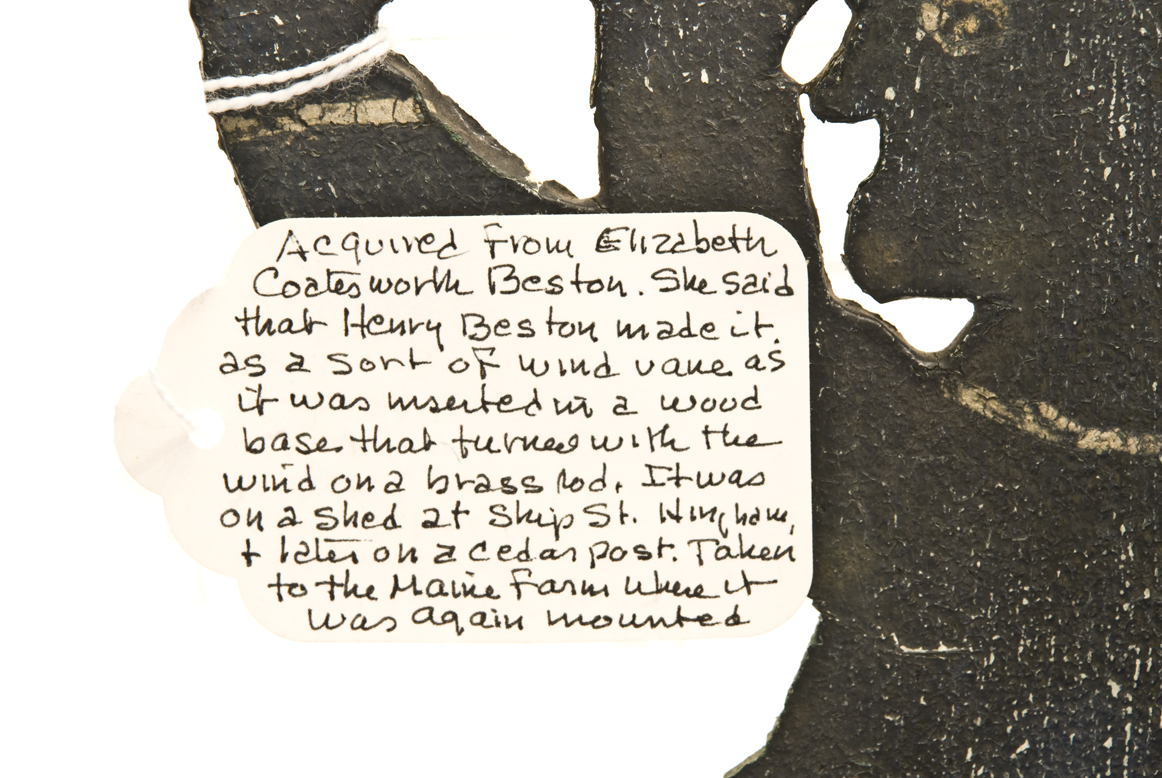 Acquired from Elizabeth
Coatesworth Beston. She said
that Henry Beston made it.
as a sort of wind vane as
it was inserted in a wood
base that turned with the
wind on a brass rod. It was
on a shed at Ship St. Hingham,
+ later on a cedar post. Taken
to the Maine Farm where it
was again mounted